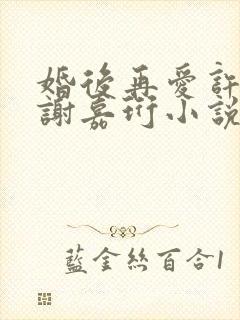 婚後再愛許
謝嘉珩小說
藍金絲百合1